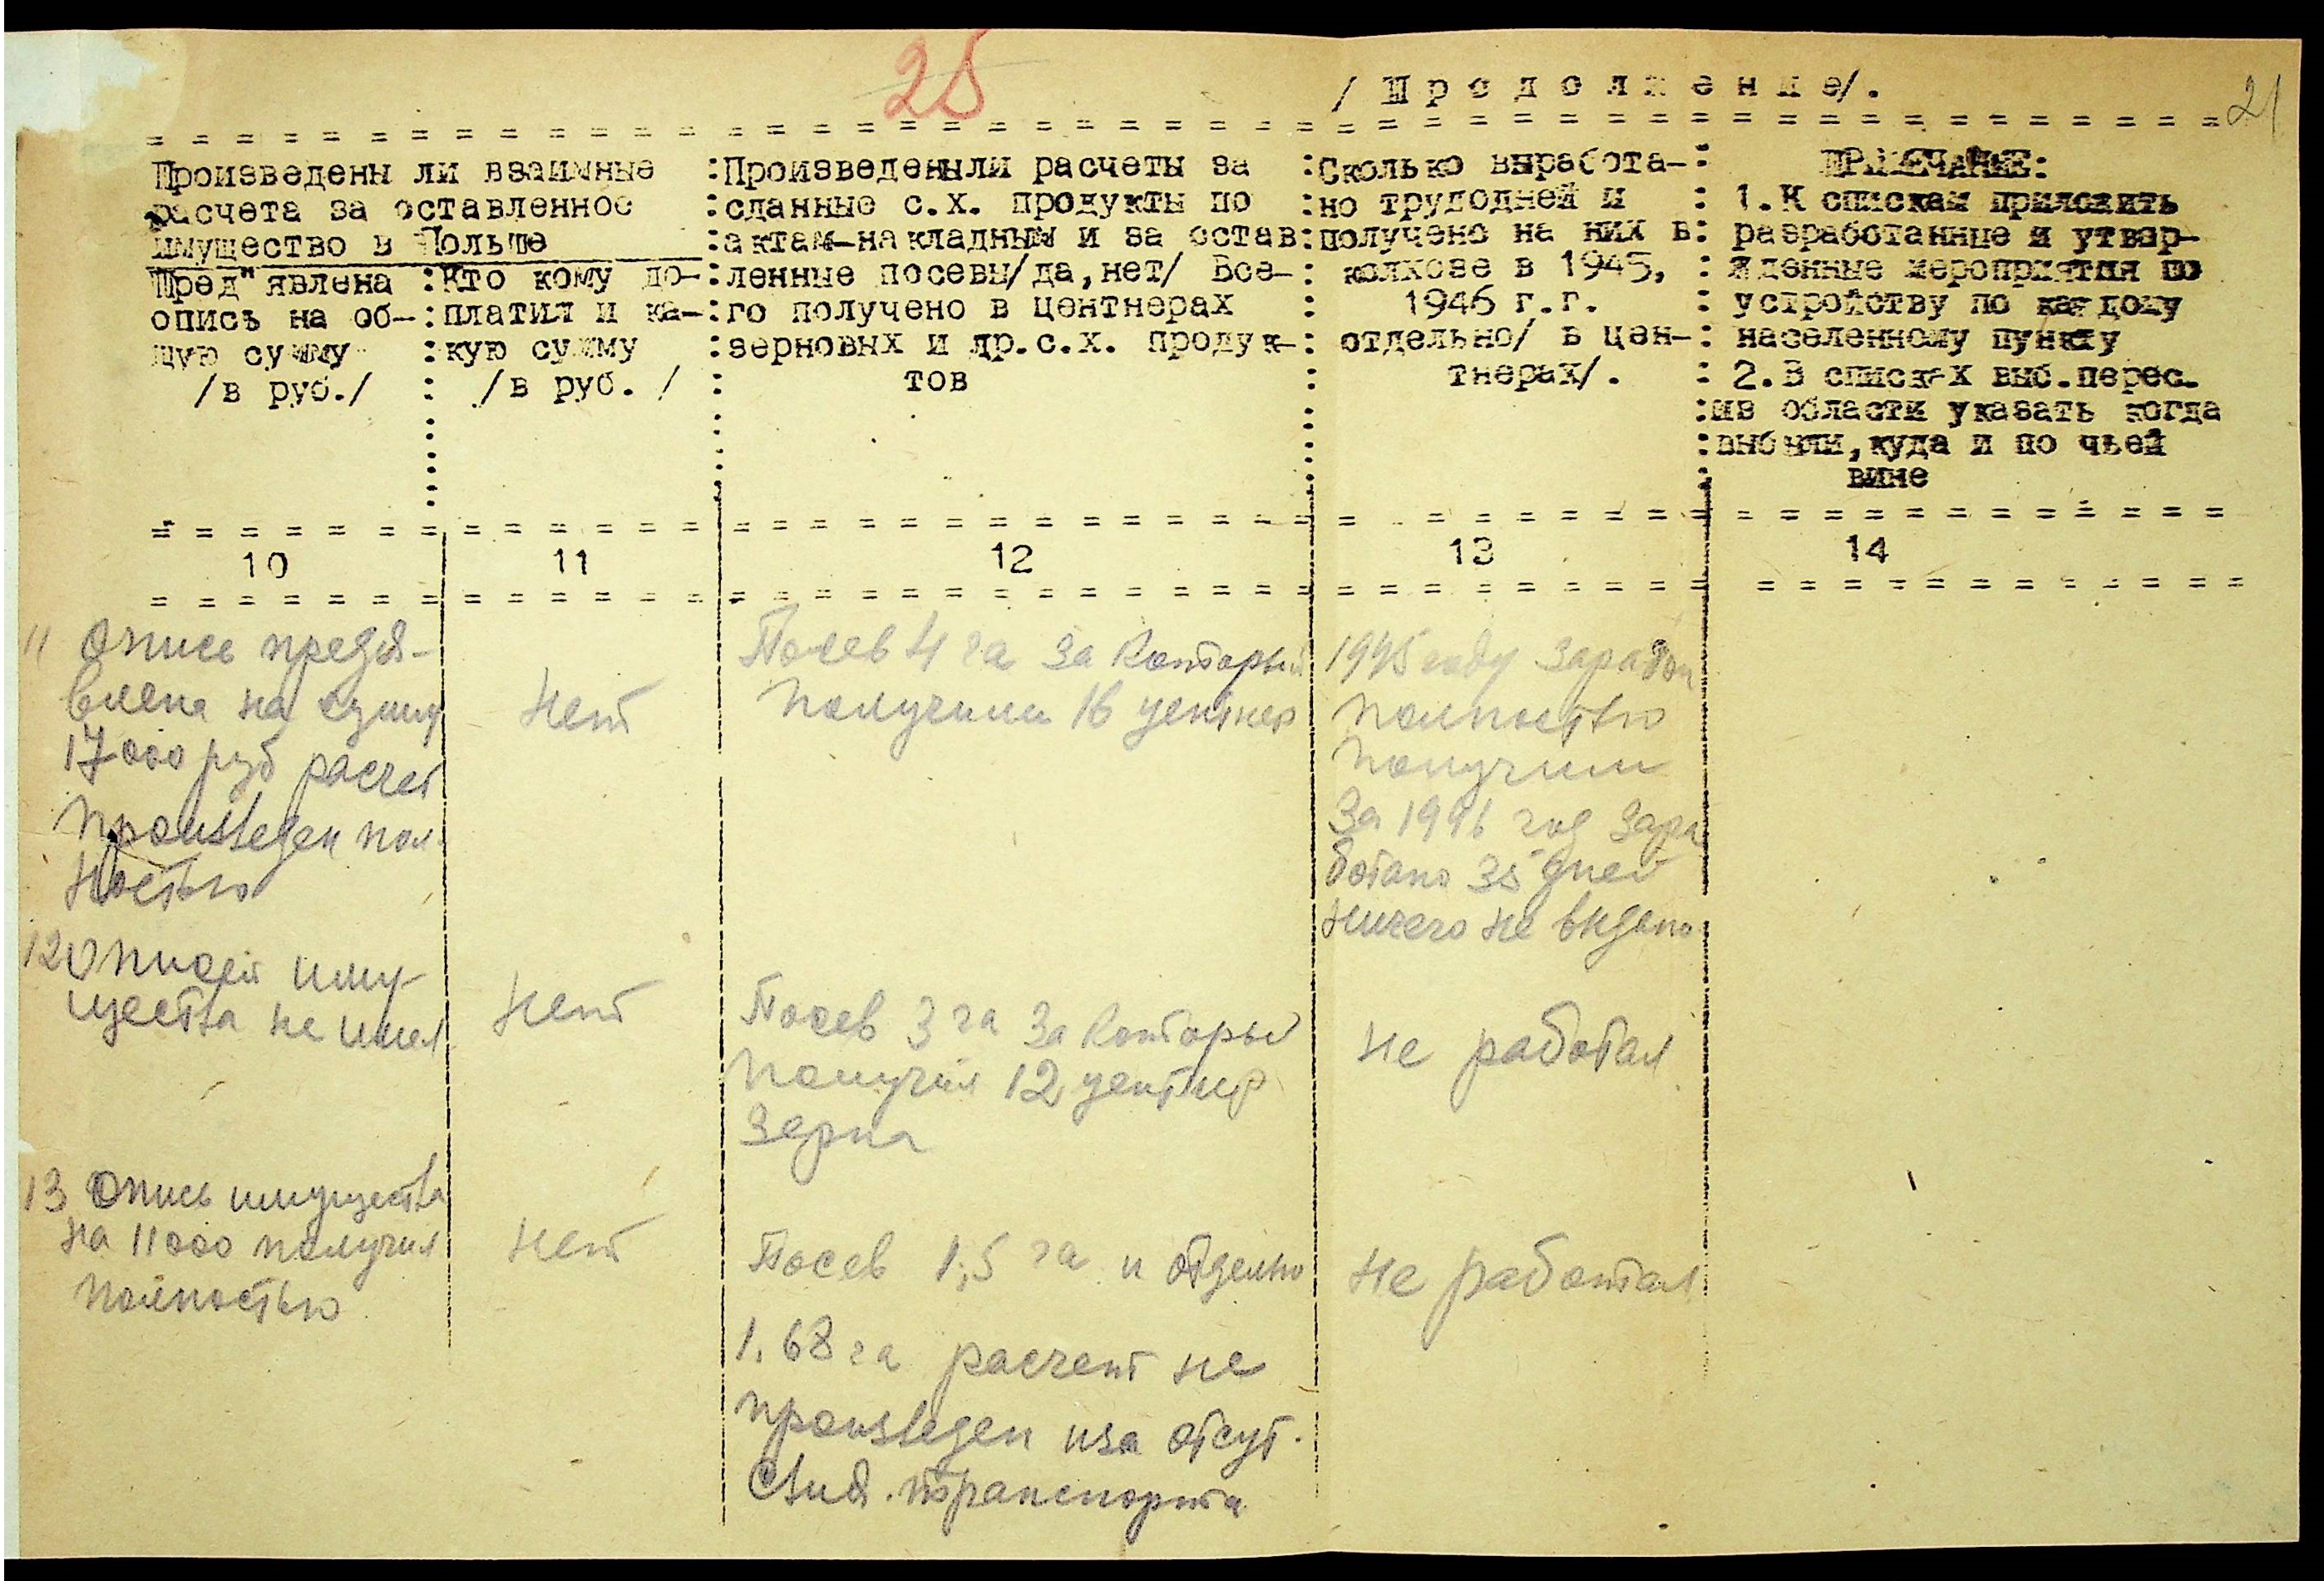 25
/ П р о д о л ж е н и е/.
21
Произведены ли взаимные
расчета за оставленное
имущество в Польше
Пред"явлена
опись на об-
щую сумму
/в руб./
Кто кому до-
платил и ка-
кую сумму
/в руб. /
Произведены ли расчеты за
сданные с.х. продукты по
актам-накладным и за остав
ленные посевы/да,нет/ Все-
го получено в центнерах
зерновых и др.с.х. продук-
тов
Сколько выработа-
но трудодней и
получено на них в
колхозе в 1945,
1946 г.г.
отдельно/ в цен-
тнерах/.
ПРИМЕЧАНИЕ:
1.К спискам приложить
разработанные и утвер-
жденные мероприятия по
устройству по каждому
населенному пункту
2.В списках выб.перес.
из области указать когда
выбыли,куда и по чьей
вине
10 11 12 13 14
11 Опись предя-
влена на сумму
17000 руб расчет
произведен пол-
ностью
Нет
Посев 4 га за который
получили 16 центнер
1945 году заработ
полностью
получили
За 1946 год зара
ботано 35 дней
ничего не видано
12 Описей иму-
щества не имел
Нет
Посев 3 га за который
получил 12 центнер
зерна
Не работал
13 Опись имущества
на 11000 получил
полностью
Нет
Посев 1,5 га и отдельно
1.68 га расчет не
произведен иза отсут.
ствия транспорта
Не работал